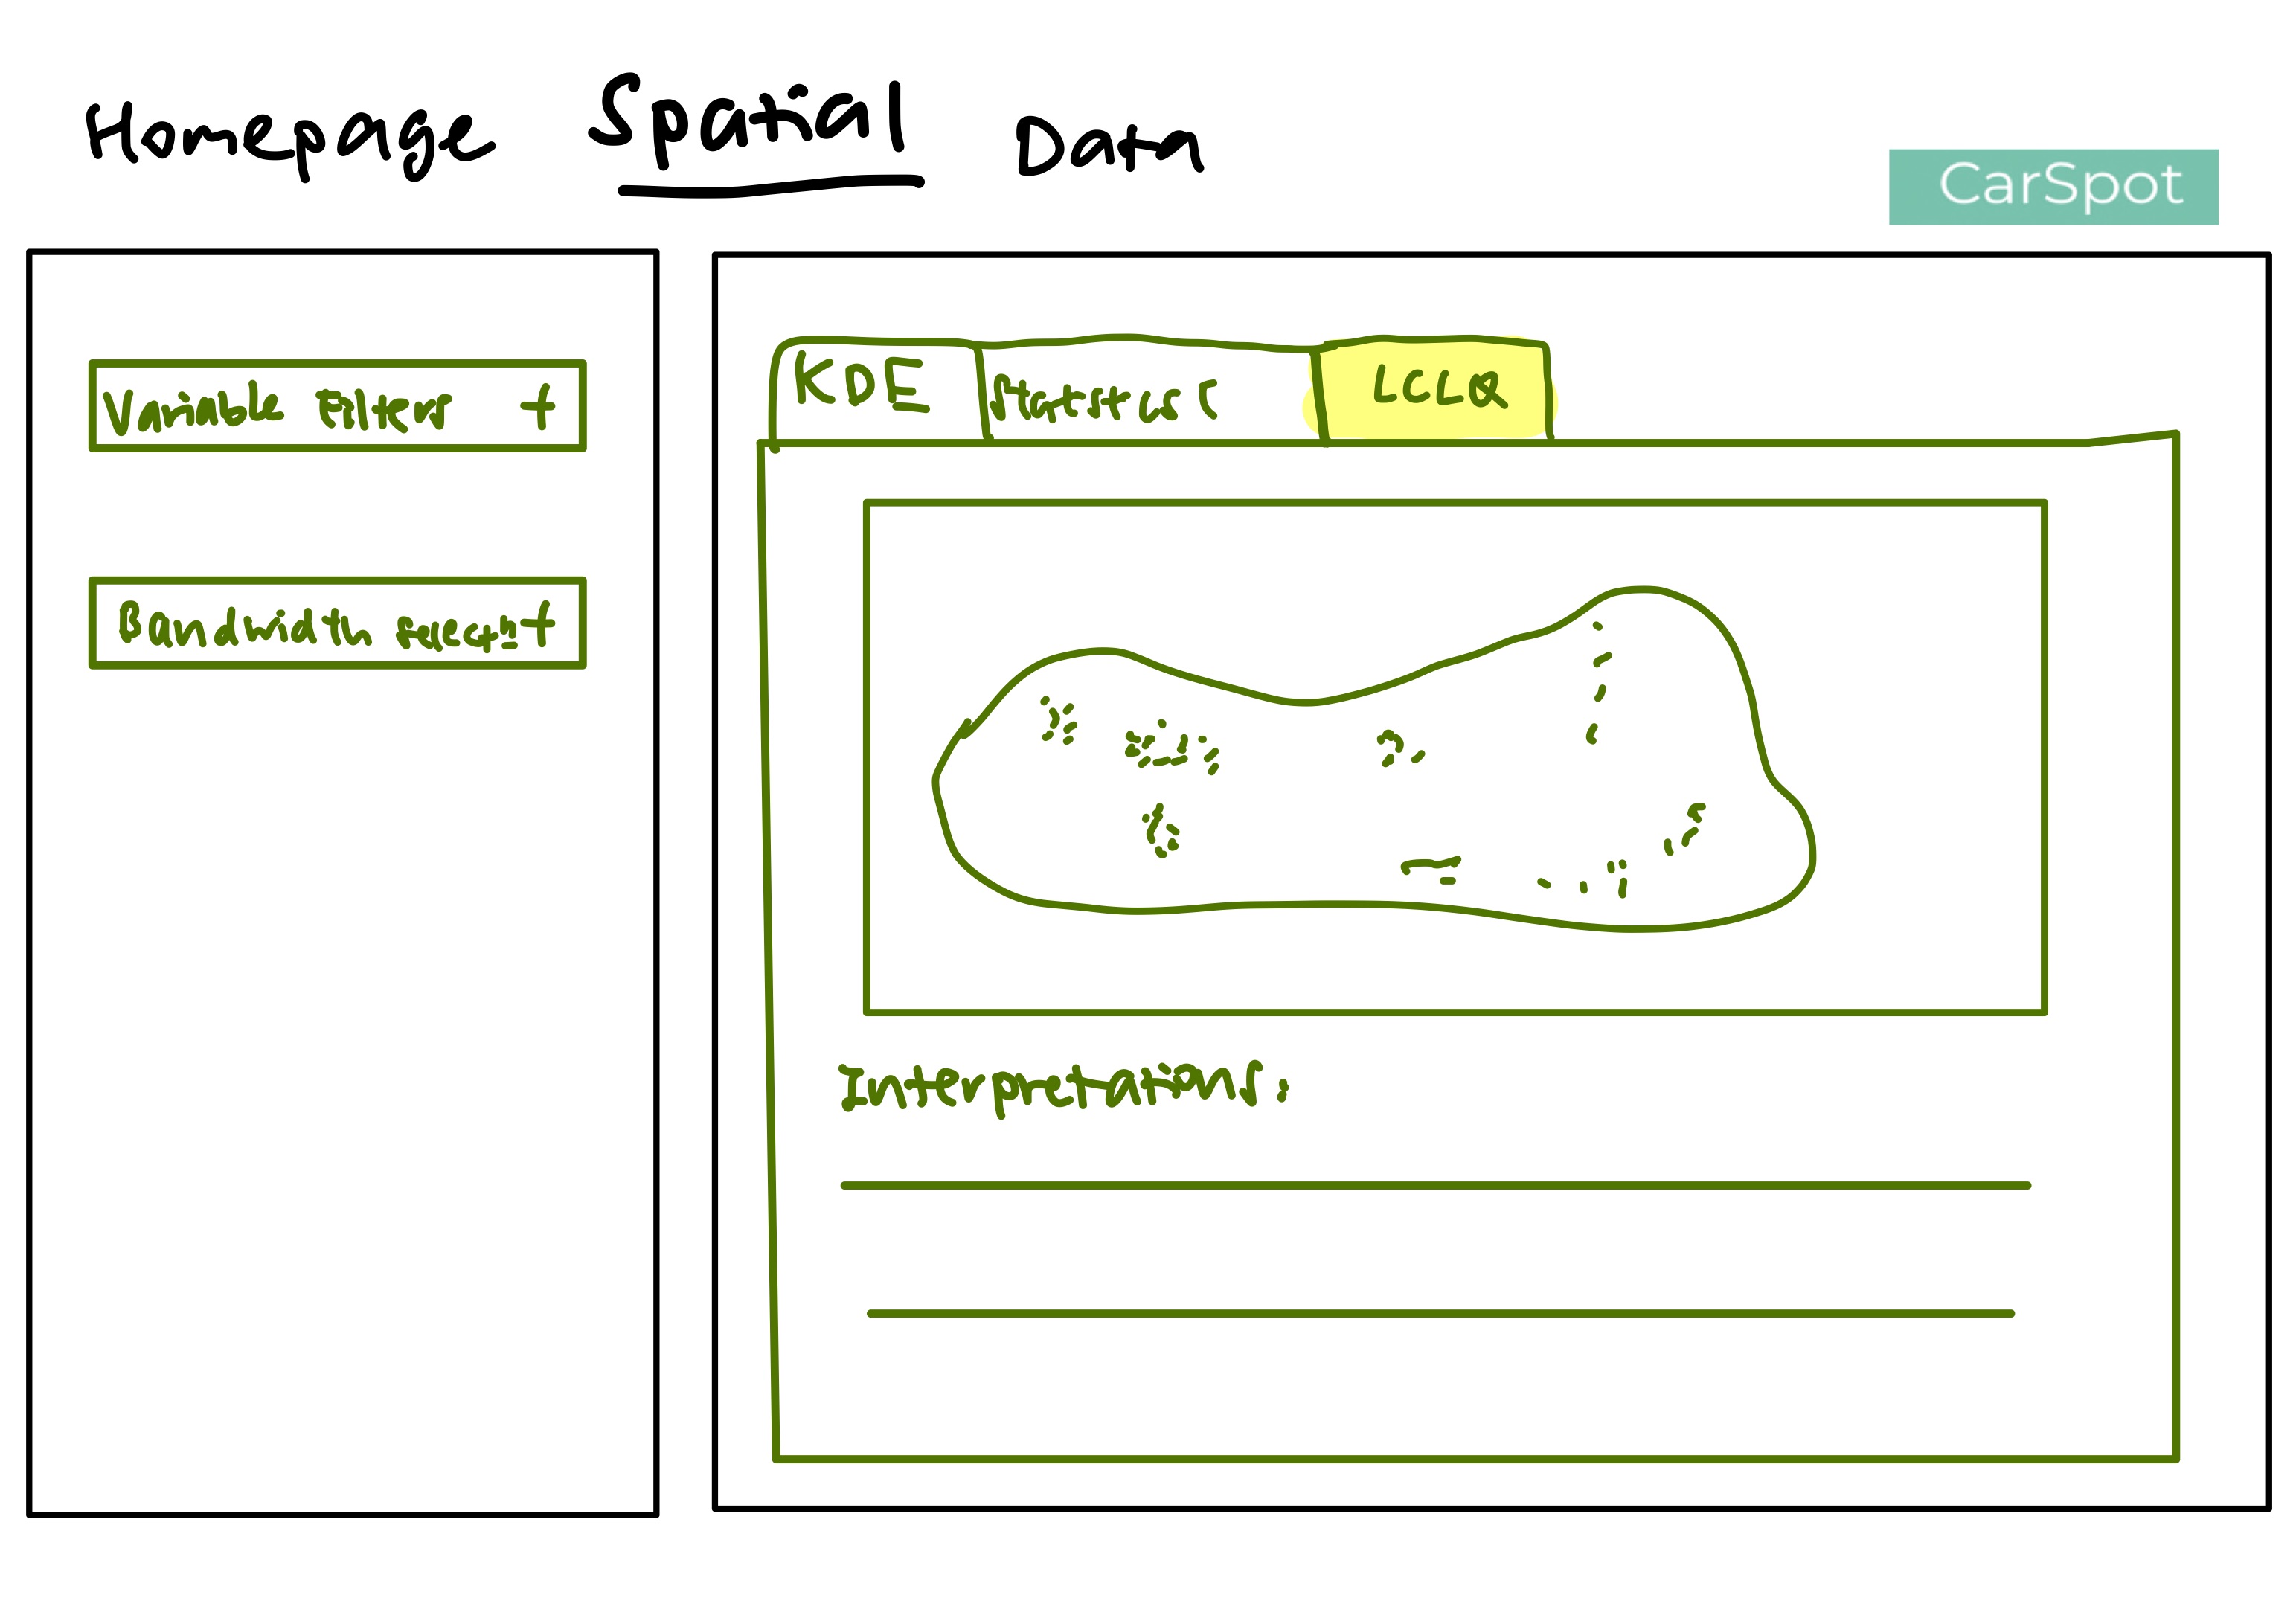 Homepage Spatial Data
CarSpot
Variable Filters +
Bandwidth select +
KDE
LCLQ
Interpretations: